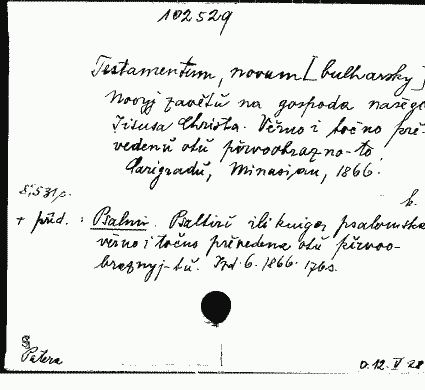 102529
Testamentum, novum [bulharsky]
Novyj zavětŭ na gospoda našego
Iisusa Christa. Věrno i točno prě-
vedenŭ otŭ pŭrvoobrazno-to.
Carigradŭ, Minasian, 1866.
8°, 531 s.
b.
+ před. : Psalmi. Psaltirĭ ili kniga psalomska
věrno i točno prěvedena otŭ pŭrvoo-
braznyj-tŭ. Izd. 6. 1866. 176 s.
Patera
D. 12. V 28